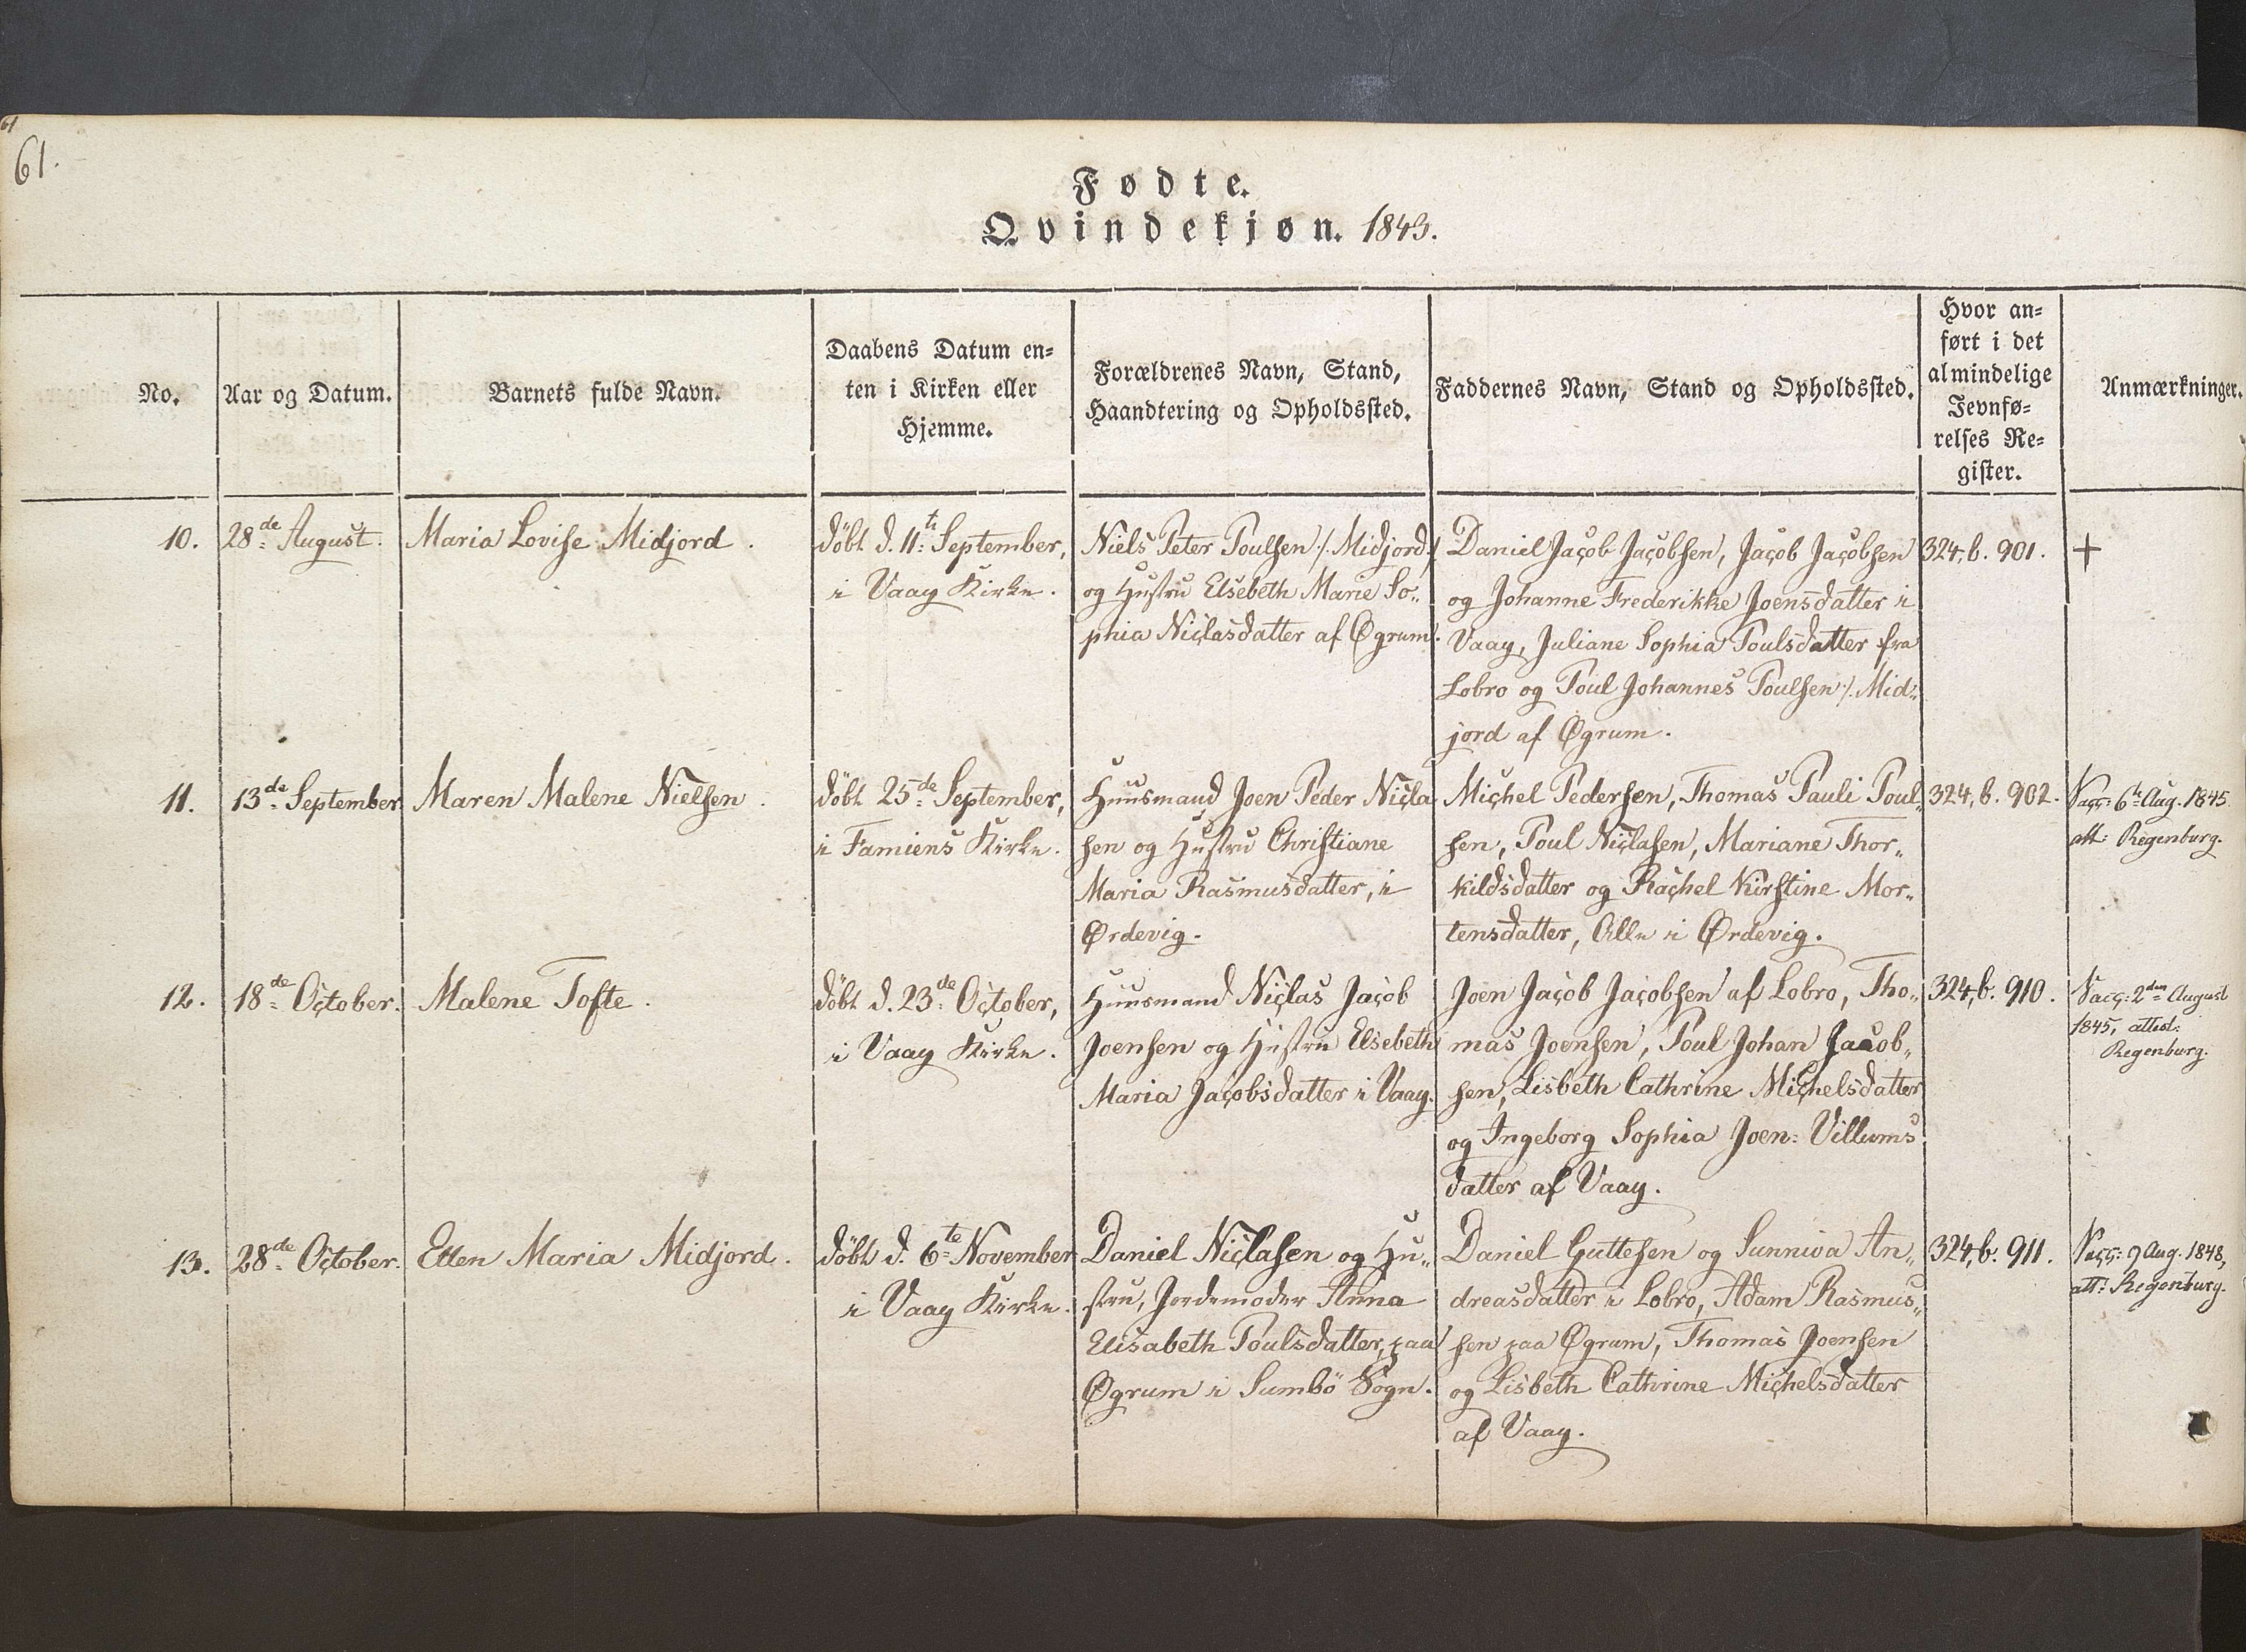 61
61.
Fødte.
Qvindekjøn. 1843.
No.
Aar og Datum.
Barnets fulde Navn.
Daabens Datum en=
ten i Kirken eller
Hjemme.
Forældrenes Navn, Stand,
Haandtering og Opholdssted.
Faddernes Navn, Stand og Opholdssted.
Hvor an=
ført i det
almindelige
Jevnfø=
relses Re=
gister.
Anmærkninger.
10.
28de August.
Maria Lovise Midjord.
döbt d. 11te September,
i Vaag Kirke.
Niels Peter Poulsen /: Midjord :/
og Hustru Elsebeth Marie So„
phia Niclasdatter af Øgrum.
Daniel Jacob Jacobsen, Jacob Jacobsen
og Johanne Frederikke Joensdatter i
Vaag, Juliane Sophia Poulsdatter fra
Lobro og Poul Johannes Poulsen /: Mid„
jord af Øgrum.
324, b. 901.
+
11.
13de September
Maren Malene Nielsen.
döbt 25de September,
i Famiens Kirke.
Huusmand Joen Peder Nicla
sen og Hustru Christiane
Maria Rasmusdatter, i
Ørdevig.
Michel Pedersen, Thomas Pauli Poul„
sen, Poul Niclasen, Mariane Thor„
kildsdatter og Rachel Kirstine Mor„
tensdatter, Alle i Ørdevig.
324, b. 902.
Vacc: 6te Aug. 1845
att: Regenburg.
12.
18de October.
Malene Tofte.
döbt d. 23de October,
i Vaag Kirke.
Huusmand Niclas Jacob
Joensen og Hustru Elsebeth
Maria Jacobsdatter i Vaag.
Joen Jacob Jacobsen af Lobro, Tho„
mas Joensen, Poul Johan Jacob„
sen, Lisbeth Cathrine Michelsdatter
og Ingeborg Sophia Joen: Villums
datter af Vaag.
324, b. 910.
Vacc: 2den August
1845, attest:
Regenburg.
13.
28de October.
Ellen Maria Midjord.
döbt d. 6te November
i Vaag Kirke.
Daniel Niclasen og Hu„
stru, Jordemoder Anna
Elisabeth Poulsdatter, paa
Øgrum i Sumbö Sogn.
Daniel Guttesen og Sunniva An„
dreasdatter i Lobro, Adam Rasmus„
sen paa Øgrum, Thomas Joensen
og Lisbeth Cathrine Michelsdatter
af Vaag.
324, b. 911.
Vacc: 9 Aug. 1848,
att: Regenburg.